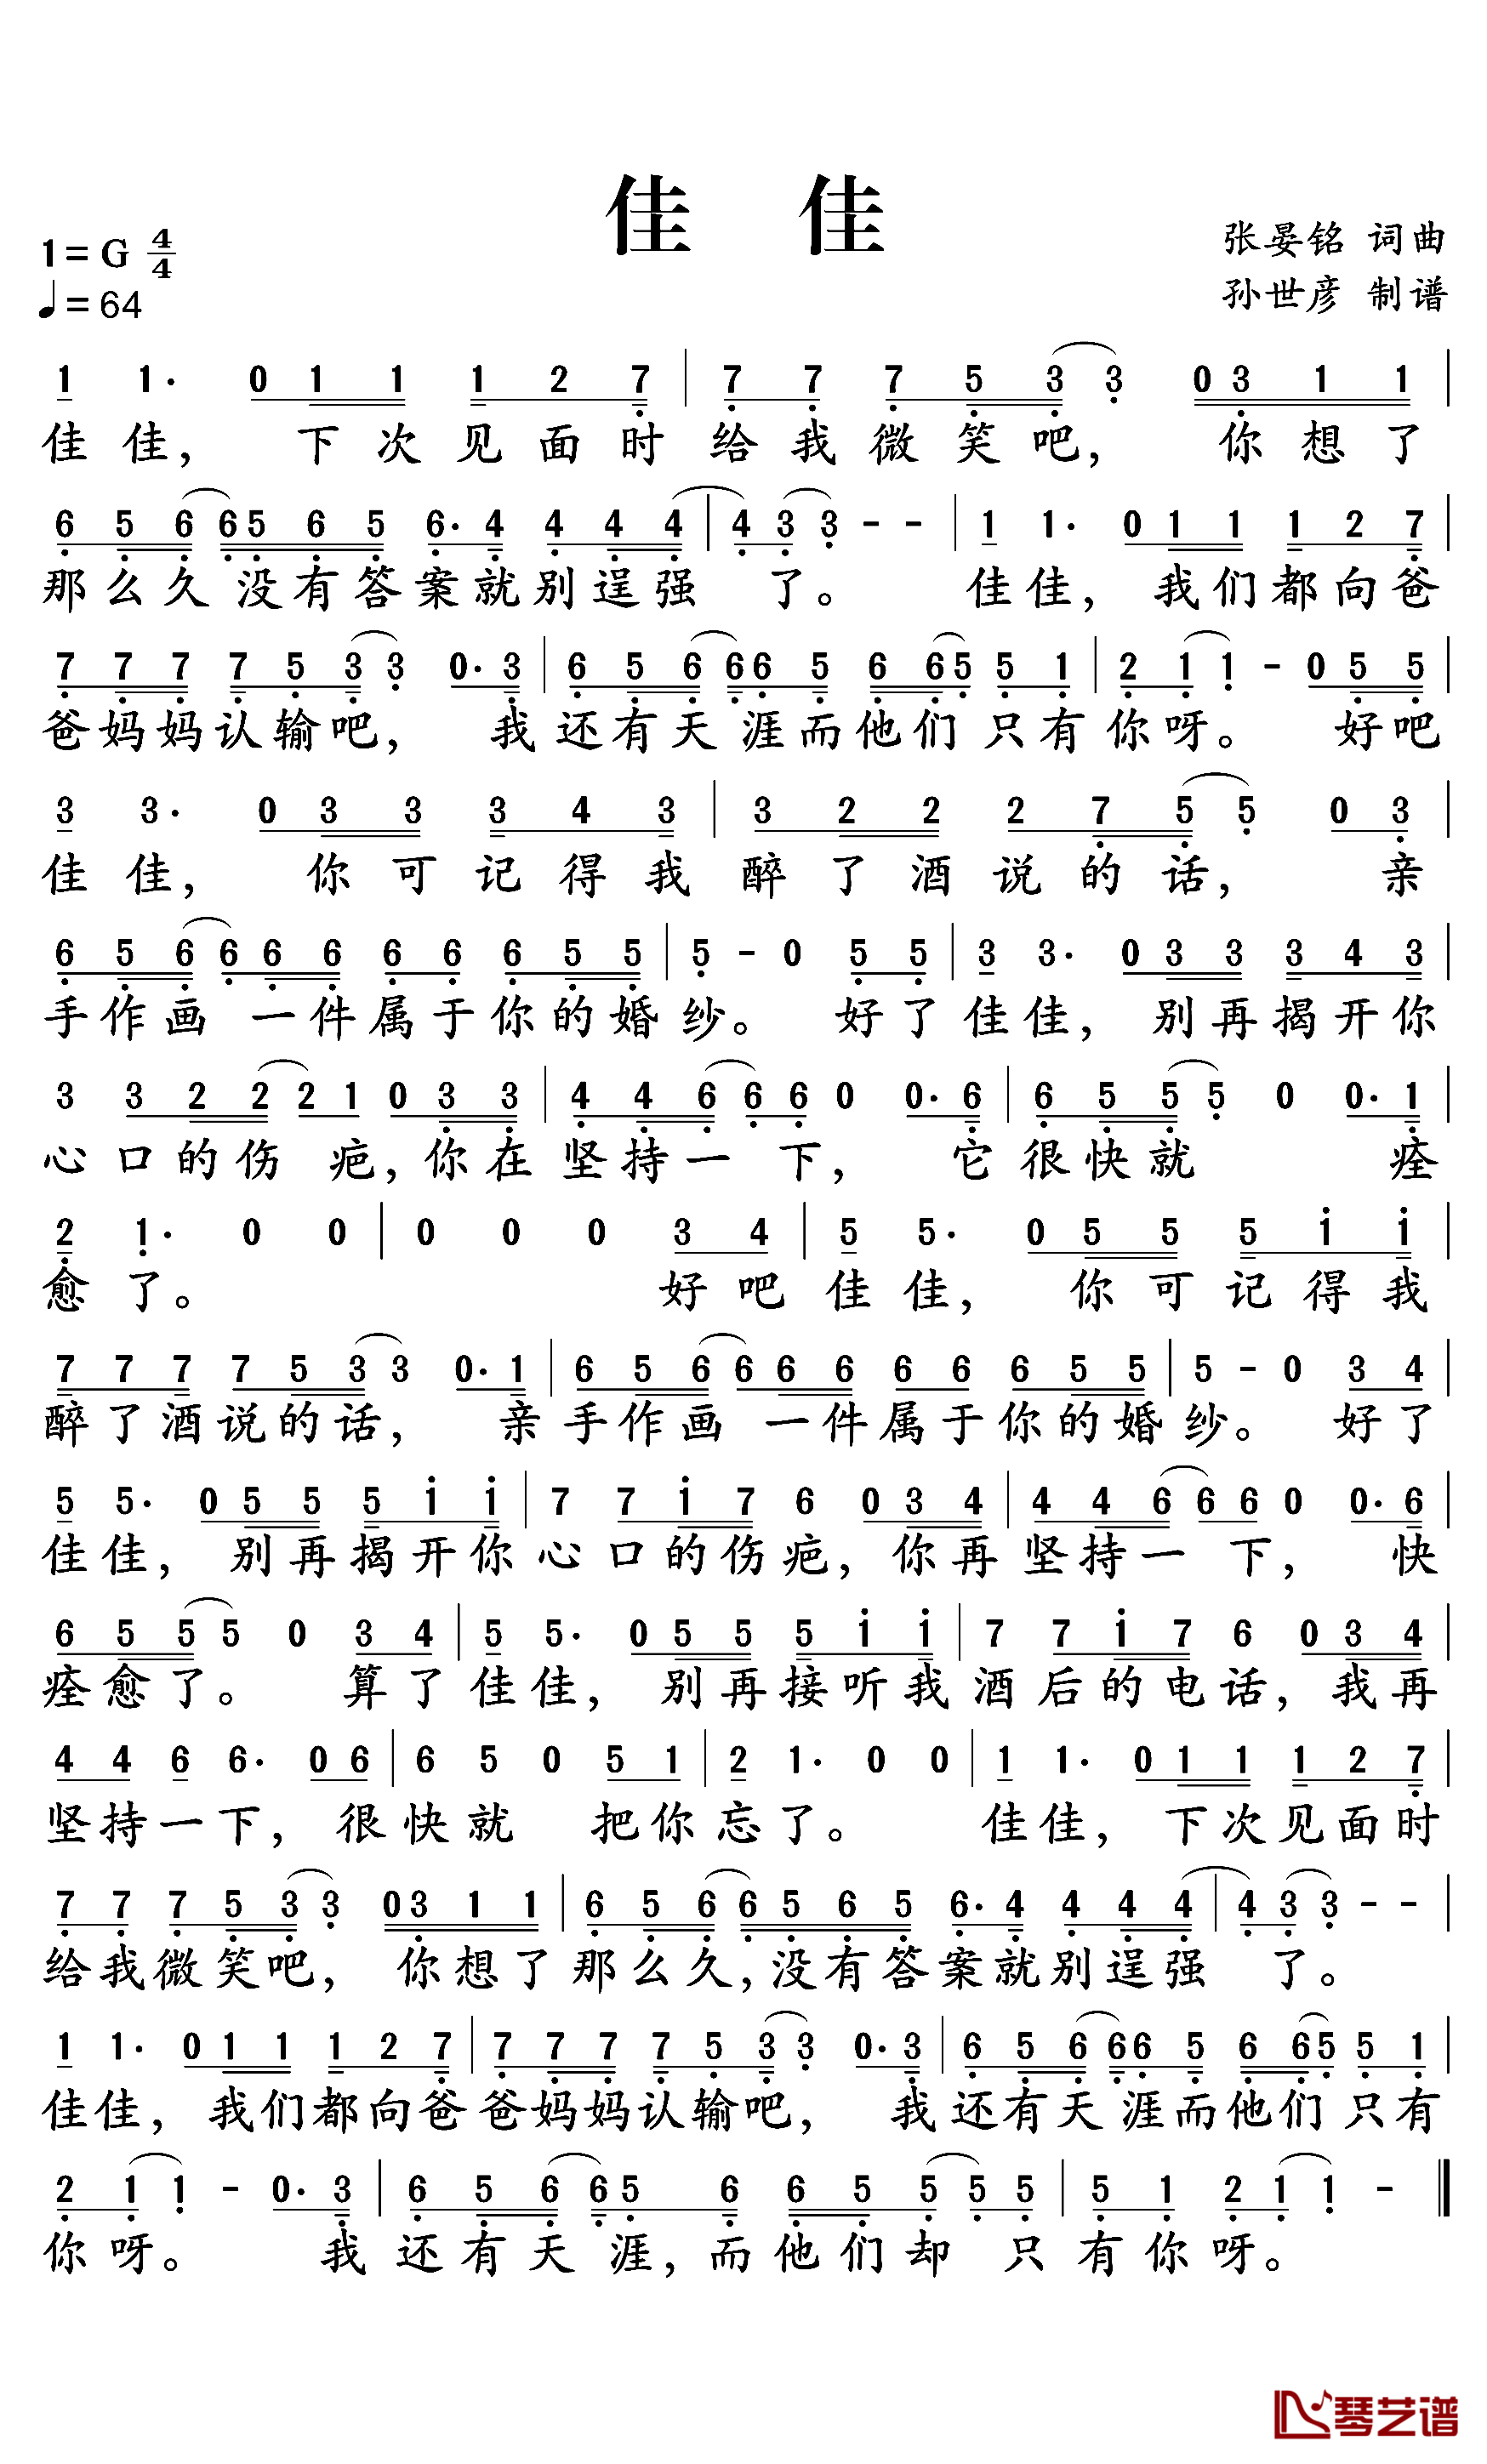 佳 佳
1=G 4/4
♩=64
张晏铭 词曲
孙世彦 制谱
1 1· 0 1 1 1 2 7 | 7 7 7 5 3 3 0 3 1 1 |
佳佳， 下次见面时给我微笑吧， 你想了
6 5 6 6 5 6 5 6· 4 4 4 4 | 4 3 3 - - | 1 1· 0 1 1 1 2 7 |
那么久没有答案就别逞强 了。 佳佳， 我们都向爸
7 7 7 7 5 3 3 0· 3 | 6 5 6 6 6 5 6 6 5 5 1 | 2 1 1 - 0 5 5 |
爸妈妈认输吧， 我还有天涯而他们只有你呀。 好吧
3 3· 0 3 3 3 4 3 | 3 2 2 2 7 5 5 0 3 |
佳佳， 你可记得我醉了酒说的话， 亲
6 5 6 6 6 6 6 6 6 5 5 | 5 - 0 5 5 | 3 3· 0 3 3 3 4 3 |
手作画 一件属于你的婚纱。 好了佳佳， 别再揭开你
3 3 2 2 2 1 0 3 3 | 4 4 6 6 6 0 0· 6 | 6 5 5 5 0 0· 1 |
心口的伤 疤，你在坚持一 下， 它很快就 痊
2 1· 0 0 | 0 0 0 3 4 | 5 5· 0 5 5 5 i i |
愈了。 好吧佳佳， 你可记得我
7 7 7 7 5 3 3 0· 1 | 6 5 6 6 6 6 6 6 6 5 5 | 5 - 0 3 4 |
醉了酒说的话， 亲手作画 一件属于你的婚纱。 好了
5 5· 0 5 5 5 i i | 7 7 i 7 6 0 3 4 | 4 4 6 6 6 0 0· 6 |
佳佳， 别再揭开你心口的伤疤，你再坚持一 下， 快
6 5 5 5 0 3 4 | 5 5· 0 5 5 5 i i | 7 7 i 7 6 0 3 4 |
痊愈了。 算了佳佳， 别再接听我酒后的电话，我再
4 4 6 6· 0 6 | 6 5 0 5 1 | 2 1· 0 0 | 1 1· 0 1 1 1 2 7 |
坚持一下， 很快就 把你忘了。 佳佳， 下次见面时
7 7 7 5 3 3 0 3 1 1 | 6 5 6 6 5 6 5 6· 4 4 4 4 | 4 3 3 - - |
给我微笑吧， 你想了那么久，没有答案就别逞强 了。
1 1· 0 1 1 1 2 7 | 7 7 7 7 5 3 3 0· 3 | 6 5 6 6 6 5 6 6 5 5 1 |
佳佳， 我们都向爸爸妈妈认输吧， 我还有天涯而他们只有
2 1 1 - 0· 3 | 6 5 6 6 5 6 6 5 5 5 5 | 5 1 2 1 1 - ‖
你呀。 我还有天 涯，而他们却 只有你呀。
琴艺谱